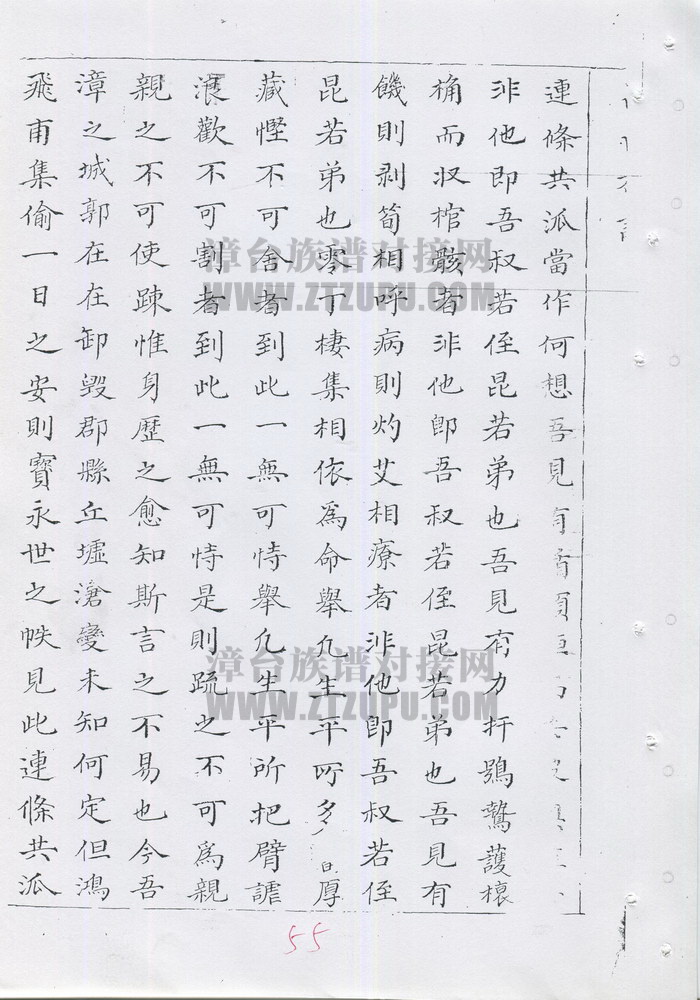 連條共派當作何想吾見有
非他即吾叔若侄昆若弟也吾見有力扞鴞鷙護榱
桷而収棺骸者非他卽吾叔若侄昆若弟也吾見有
饑則剥筍相呼病則灼艾相療者非他卽吾叔若侄
昆若弟也零丁棲集相依爲命舉凢生平所多厚
藏慳不可舍者到此一無可恃舉凢生平所把臂謔
浪歡不可割者到此一無可恃是則疏之不可爲親
親之不可使踈惟身歷之愈知斯言之不易也今吾
漳之城郭在在卸毀郡縣丘墟滄變未知何定但鴻
飛甫集偷一日之安則寳永世之帙見此連條共派
漳台族谱对接网
WWW.ZTZUPU.COM
漳台族谱对接网
WWW.ZTZUPU.COM
55